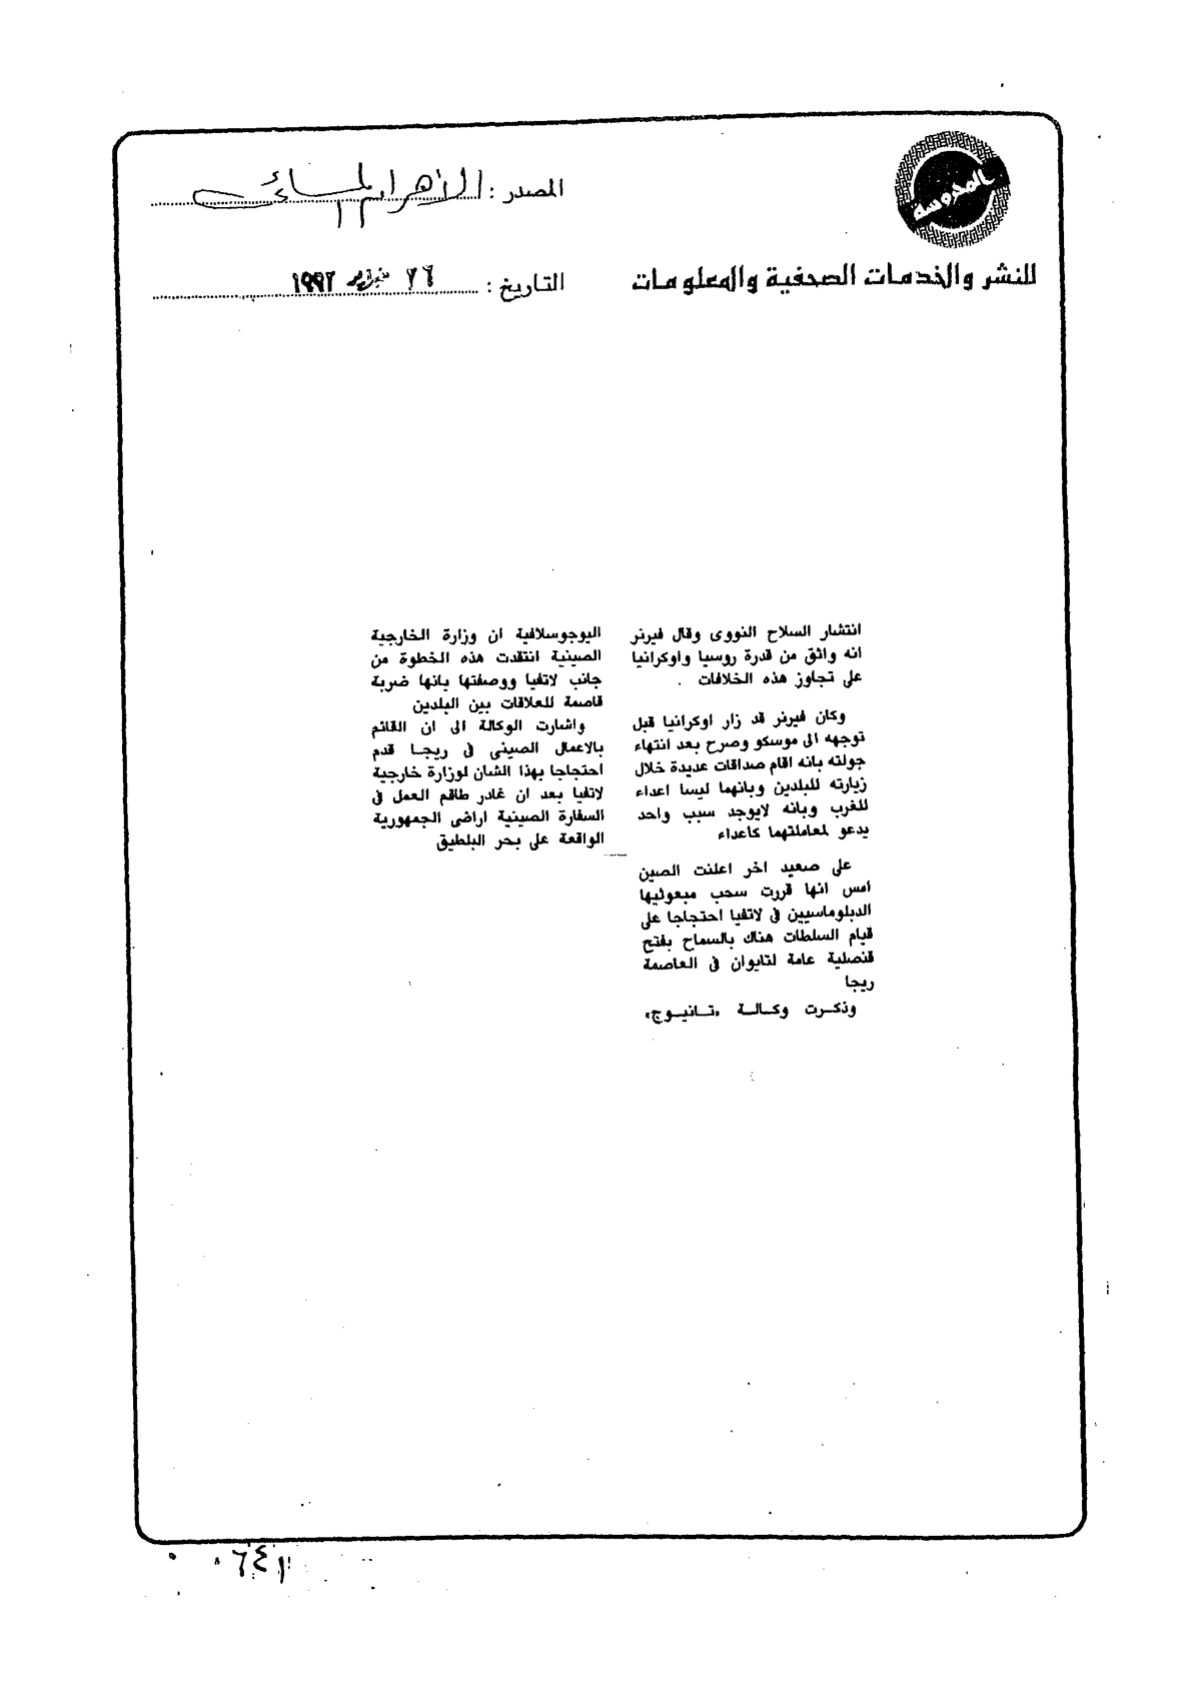 المحروسة
للنشر والخدمات الصحفية والمعلومات
المصدر : الأهرام المسائى
التاريخ : ٢٦ فبراير ١٩٩٢
انتشار السلاح النووى وقال فيرنر
انه واثق من قدرة روسيا واوكرانيا
على تجاوز هذه الخلافات .
وكان فيرنر قد زار اوكرانيا قبل
توجهه الى موسكو وصرح بعد انتهاء
جولته بانه اقام صداقات عديدة خلال
زيارته للبلدين وبانهما ليسا اعداء
للغرب وبانه لايوجد سبب واحد
يدعو لمعاملتهما كاعداء
على صعيد اخر اعلنت الصين
امس انها قررت سحب مبعوثيها
الدبلوماسيين فى لاتفيا احتجاجا على
قيام السلطات هناك بالسماح بفتح
قنصلية عامة لتايوان فى العاصمة
ريجا
وذكرت وكالة «تانيوج»
اليوجوسلافية ان وزارة الخارجية
الصينية انتقدت هذه الخطوة من
جانب لاتفيا ووصفتها بانها ضربة
قاصمة للعلاقات بين البلدين
واشارت الوكالة الى ان القائم
بالاعمال الصينى فى ريجا قدم
احتجاجا بهذا الشان لوزارة خارجية
لاتفيا بعد ان غادر طاقم العمل فى
السفارة الصينية اراضى الجمهورية
الواقعة على بحر البلطيق